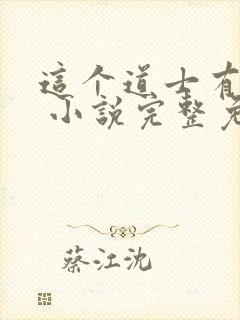 這个道士有
小說完整免
蔡江沈